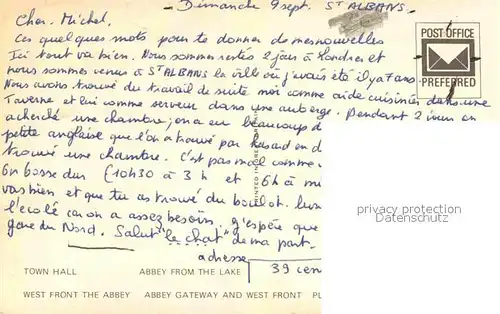 Dimanche 9 sept. ST ALBANS.
Cher Michel,
Ces quelques mots pour te donner de mes nouvelles
Ici tout va bien. Nous sommes restés 2 jours à Londres et
nous sommes venus à ST ALBANS la ville où j'avais été il y a 7 ans
Nous avons trouvé du travail de suite moi comme aide cuisinier dans une
Taverne et lui comme serveur dans une auberge. Pendant 2 jours on
a cherché une chambre, on a eu beaucoup d
petite anglaise que l'on a trouvé par hasard en d
trouvé une chambre. C'est pas mal comme
On bosse dur (10h30 à 3h et 6h à mi
vas bien et que tu as trouvé du boulot.
l'école car on a assez besoin. J'espère que
gare du Nord. Salut "le chat" de ma part.
adresse
39 cen
POST OFFICE
PREFERRED
PRINTED IN
privacy protection
Datenschutz
TOWN HALL ABBEY FROM THE LAKE
WEST FRONT THE ABBEY ABBEY GATEWAY AND WEST FRONT PL